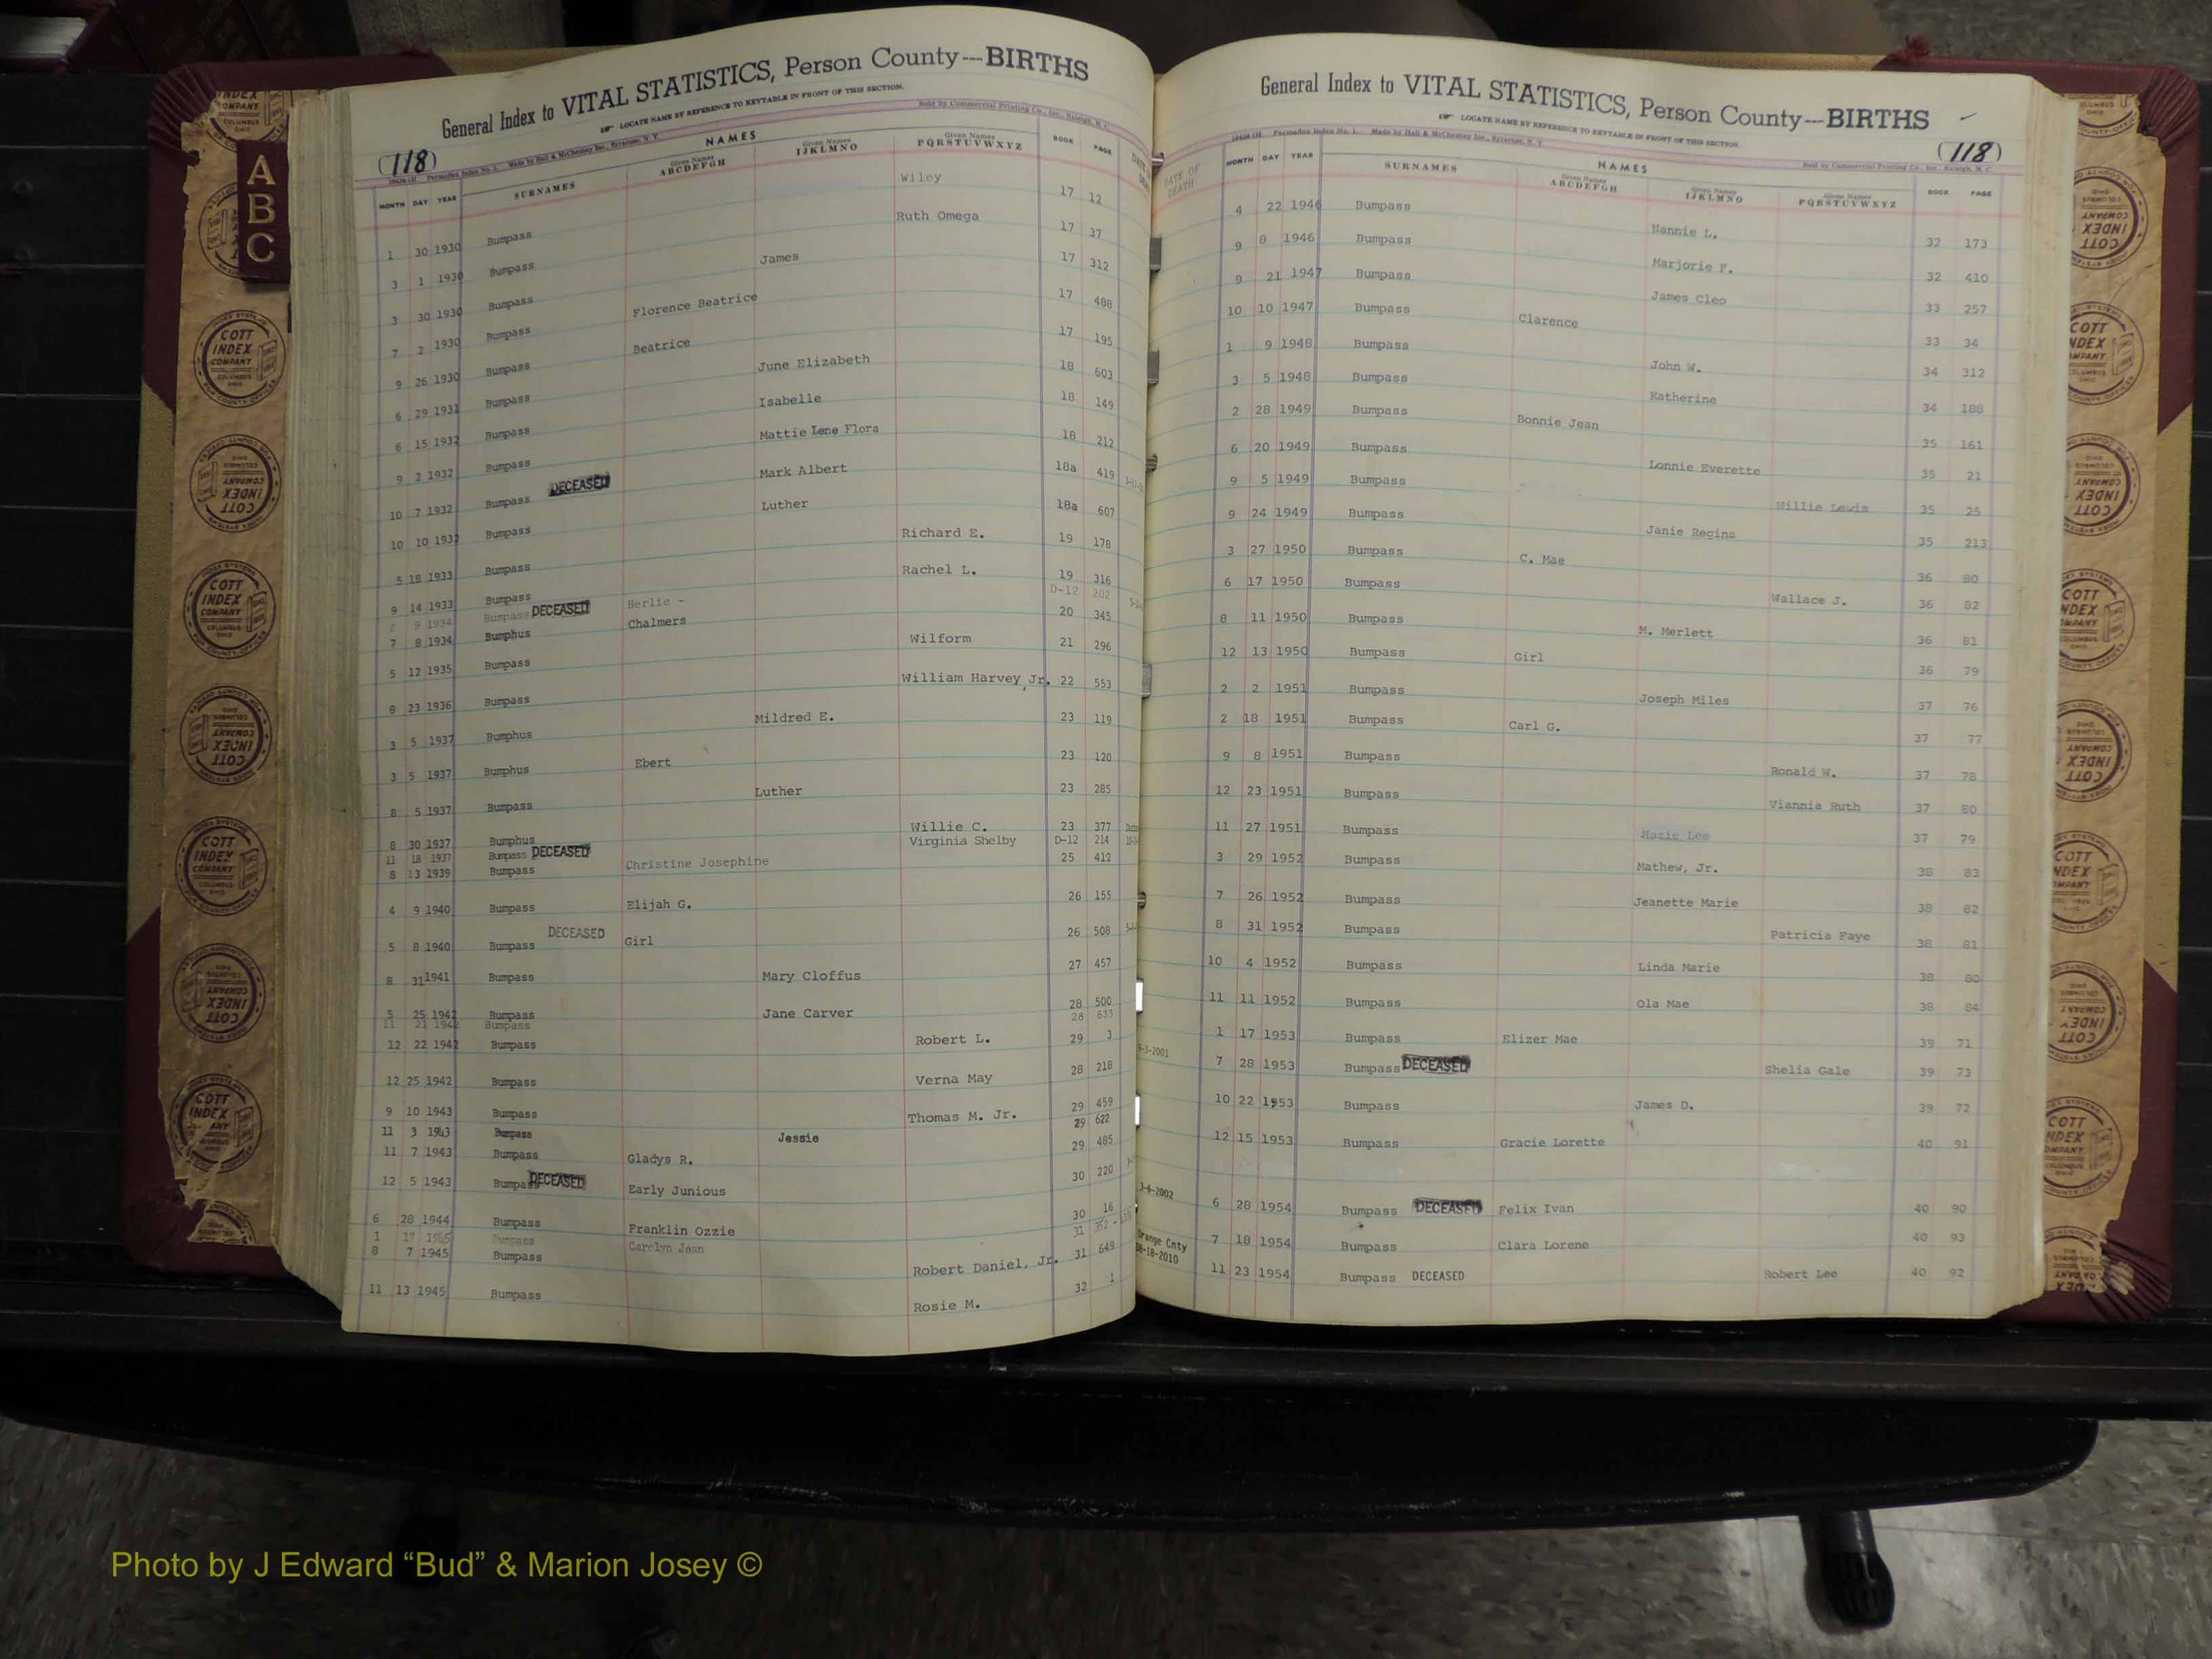 General Index to VITAL STATISTICS, Person County---BIRTHS
LOCATE NAME BY REFERENCE TO KEYTABLE IN FRONT OF THIS SECTION.
Sold by Commercial Printing Co., Inc., Raleigh, N. C.
(118)
Made by Hall & McChesney Inc., Syracuse, N. Y.
NAMES
MONTH DAY YEAR SURNAMES Given Names ABCDEFGH Given Names IJKLMNO Given Names PQRSTUVWXYZ BOOK PAGE
1 30 1930 Bumpass Wiley 17 12
3 1 1930 Bumpass Ruth Omega 17 37
3 30 1930 Bumpass James 17 312
7 2 1930 Bumpass Florence Beatrice 17 488
9 26 1930 Bumpass Beatrice 17 195
6 29 1931 Bumpass June Elizabeth 18 603
6 15 1932 Bumpass Isabelle 18 149
9 2 1932 Bumpass Mattie Lene Flora 18 212
10 7 1932 Bumpass DECEASED Mark Albert 18a 419
10 10 1932 Bumpass Luther 18a 607
5 18 1933 Bumpass Richard E. 19 178
9 14 1933 Bumpass Rachel L. 19 316
2 9 1934 Bumpass DECEASED Berlie - D-12 202
7 8 1934 Bumphus Chalmers 20 345
5 12 1935 Bumpass Wilform 21 296
8 23 1936 Bumpass William Harvey, Jr. 22 553
3 5 1937 Bumphus Mildred E. 23 119
3 5 1937 Bumphus Ebert 23 120
8 5 1937 Bumpass Luther 23 285
8 30 1937 Bumphus Willie C. 23 377
11 18 1937 Bumpass DECEASED Virginia Shelby D-12 214
8 13 1939 Bumpass Christine Josephine 25 412
4 9 1940 Bumpass Elijah G. 26 155
5 8 1940 Bumpass DECEASED Girl 26 508
8 31 1941 Bumpass Mary Cloffus 27 457
5 25 1942 Bumpass Jane Carver 28 500
11 21 1942 Bumpass 28 633
12 22 1942 Bumpass Robert L. 29 3
12 25 1942 Bumpass Verna May 28 218
9 10 1943 Bumpass Thomas M. Jr. 29 459
11 3 1943 Bumpass Jessie 29 622
11 7 1943 Bumpass Gladys R. 29 485
12 5 1943 Bumpass DECEASED Early Junious 30 220
6 28 1944 Bumpass Franklin Ozzie 30 16
1 17 1945 Bumpass Carolyn Jean 31 352
8 7 1945 Bumpass Robert Daniel, Jr. 31 649
11 13 1945 Bumpass Rosie M. 32 1
General Index to VITAL STATISTICS, Person County---BIRTHS
LOCATE NAME BY REFERENCE TO KEYTABLE IN FRONT OF THIS SECTION.
(118)
Made by Hall & McChesney Inc., Syracuse, N. Y.
Sold by Commercial Printing Co., Inc., Raleigh, N. C.
NAMES
DATE OF DEATH MONTH DAY YEAR SURNAMES Given Names ABCDEFGH Given Names IJKLMNO Given Names PQRSTUVWXYZ BOOK PAGE
4 22 1946 Bumpass Nannie L. 32 173
9 8 1946 Bumpass Marjorie P. 32 410
9 21 1947 Bumpass James Cleo 33 257
10 10 1947 Bumpass Clarence 33 34
1 9 1948 Bumpass John W. 34 312
3 5 1948 Bumpass Katherine 34 188
2 28 1949 Bumpass Bonnie Jean 35 161
6 20 1949 Bumpass Lonnie Everette 35 21
9 5 1949 Bumpass Willie Lewis 35 25
9 24 1949 Bumpass Janie Regina 35 213
3 27 1950 Bumpass C. Mae 36 80
6 17 1950 Bumpass Wallace J. 36 82
8 11 1950 Bumpass M. Merlett 36 81
12 13 1950 Bumpass Girl 36 79
2 2 1951 Bumpass Joseph Miles 37 76
2 18 1951 Bumpass Carl G. 37 77
9 8 1951 Bumpass Ronald W. 37 78
12 23 1951 Bumpass Viannia Ruth 37 80
11 27 1951 Bumpass Mazie Lee 37 79
3 29 1952 Bumpass Mathew, Jr. 38 83
7 26 1952 Bumpass Jeanette Marie 38 82
8 31 1952 Bumpass Patricia Faye 38 81
10 4 1952 Bumpass Linda Marie 38 80
11 11 1952 Bumpass Ola Mae 38 84
1 17 1953 Bumpass Elizer Mae 39 71
9-3-2001 7 28 1953 Bumpass DECEASED Shelia Gale 39 73
10 22 1953 Bumpass James D. 39 72
12 15 1953 Bumpass Gracie Lorette 40 91
3-6-2002 6 28 1954 Bumpass DECEASED Felix Ivan 40 90
7 18 1954 Bumpass Clara Lorene 40 93
Orange Cnty 08-18-2010 11 23 1954 Bumpass DECEASED Robert Lee 40 92
A
B
C
COTT
INDEX
COMPANY
COLUMBUS
OHIO
Photo by J Edward “Bud” & Marion Josey ©